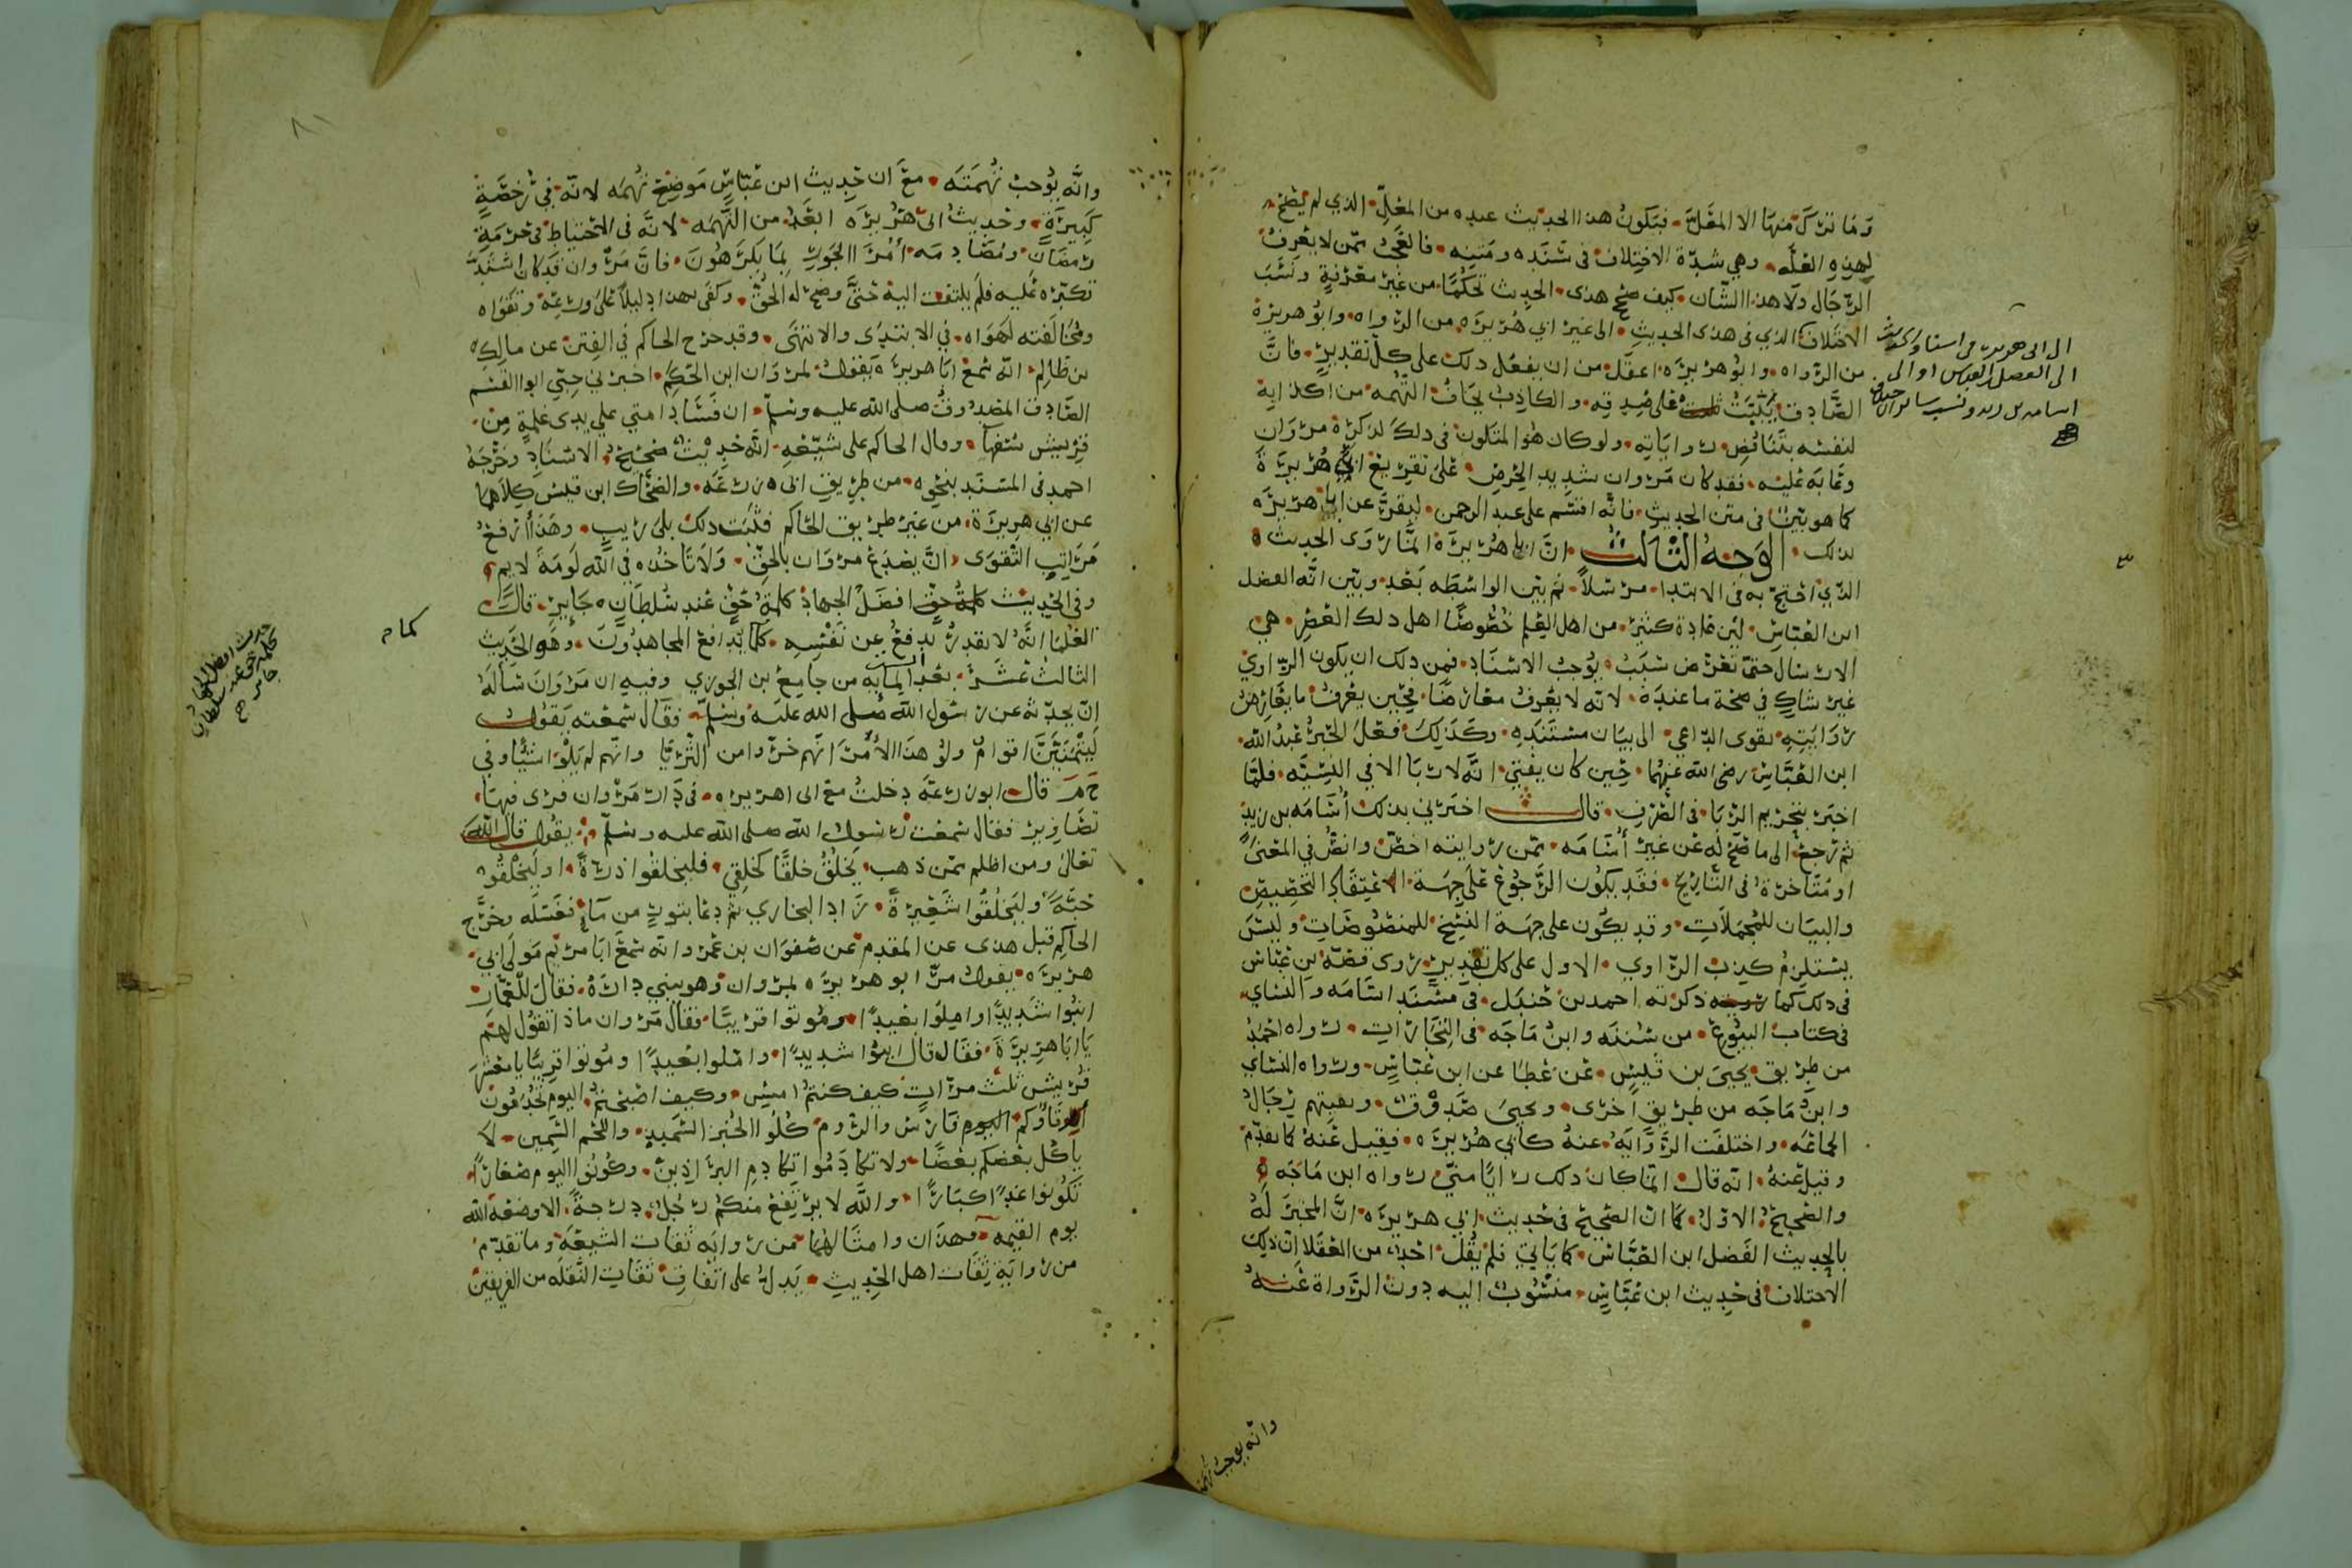 وما ترك منها الا المعَلّ فيكونُ هذا الحديث عنده من المعلّ الذي لم يصح
لهذه العلّه وهي شدّة الاختلاف في سنده ومتنه فالعجبُ ممن لا يعرفُ
الرجال ولا هذا الشان كيف صحح هذى الحديث تحكّمًا من غير معرفةٍ ونسَبَ
الاختلاف الذي في هذى الحديثِ الى غير ابي هُريرَه من الرواه وابو هريرة
من الرواه وابُو هريرَه اعقل من ان يفعل ذلك على كلّ تقديرٍ فانَّ
الصَّادق يَثبُتُ على صِدقِه والكاذِبُ يخافُ التّهمه من اكذابِهِ
لنفسه بتناقض رواياتِهِ ولو كان هُو المتلون في ذلكَ لذكرَهُ مَروَان
وعَابَهُ عليه فقد كان مَروان شديد الحِرصِ على تقريع ابي هُريرَةَ
كما هو بيّنٌ في متن الحديثِ فانّه اقسم على عبد الرحمن ليقرّعن ابا هريرَه
بذلك الوَجهُ الثّالثُ انّ ابا هُريرَه لمَّا رَوَى الحديث
الذي احتجّ به في الابتدا مُرسَلاً ثم بيّن الواسطَه بَعْد وبيّن انّه الفضل
ابن العبّاسِ لبّن عادة كثيرٍ من اهل العِلمِ خُصُوصًا اهل ذلك العَصرِ هي
الارسَال حتّى تعرض سَبَبٌ يُوجب الاسنَاد فمن ذلك ان يكون الرّاوي
غير شاكٍ في صحّة ما عندَهُ لانّه لا يعرفُ معارضًا فحين يعرفُ ما يعَارضُ
رِوَايتِهِ يقوى الدّاعي الى بيَان مستَنَدِهِ وكَذلِكَ فعَلَ الحَبرُ عبدُ الله
ابن العبّاسِ رضي الله عنهما حين كان يفتي انّه لا رِبَا الا في النسِيّه فلمّا
اخبرَ بتحريم الرّبا في الصّرفِ قال اخبَرني بذلك أسَامَه بن زيد
ثم رجعَ الى ما صَحّ له عن غير أسَامَه ممّن روايته اخصّ وانصّ في المعنَى
او متَأخرة في التّاريخ فقَد يكُون الرّجُوعُ على جِهَة الاعتِقَادِ التخصِيصِ
والبيَان للمجمَلاتِ وقد يكون على جِهَة النسخِ للمنصُوصَاتِ وليسَ
يستلزمُ كذِب الرّاوي الاول على كل تقديرٍ روى قصّة بن عبّاس
في ذلك كما ذكرته احمد بن حنبَل في مسنَد اسَامَه والنسَاي
في كتاب البيُوع من سُننه وابنُ مَاجَه في التّجَارات رواه احمَدُ
من طريق يحيى بن قيسٍ عن عَطَا عن ابن عبّاسٍ ورواه النسَاي
وابن مَاجَه من طريقٍ أخرَى ويحيَى صَدُوقٌ وبقيتهم رجَالُ
الجماعَه واختلفت الرّوَايَةُ عنهُ كأبي هُريرَه فقِيل عَنهُ كما تقدّم
وقيل عَنهُ انّه قال انّما كانَ ذلك رايًا منّي رواه ابن مَاجَه
والصّحِيحُ الاوّلُ كما انّ الصّحيحَ في حَديث ابي هريرَه انّ المخبرَ لهُ
بالحديث الفَضل ابن العَبّاس كما ياتي فلم يقُل احدٌ من العُقَلا انّ ذلك
الاختلاف في حَديث ابن عبّاسٍ منسُوبٌ اليه دون الرّواة عنهُ
وانه يوجب تهمته
وانّه يُوجبُ تُهمَتَه معَ ان حَديث ابن عبّاسٍ مَوضِع تُهمَه لانّه في رُخصَةٍ
كبيرَةٍ وحَديثُ ابي هُريرَه ابعَدُ من التّهمَه لانّه في الاحتياط في حُرمَةِ
رمضَان ومُصَادِمَه أُمَرَا الجَورِ بما يكرَهُونَ فانّ مَروان قد كان اشتَدّ
تكبّره عليه فلم يلتفت اليه حتّى وضح له الحَقّ وكفى بهذا دليلاً على ورَعِهِ وتقوَاه
ومخَالَفته لهَوَاه في الابتدى والانتهَى وقد خرّج الحاكم في الفِتن عن مالِك
بن ظَالِم انّه سَمعَ ابَا هريرَه يقُولُ لمروَان ابن الحَكَمِ اخبرني حِبّي ابو القسم
الصّادق المصدُوقُ صلى الله عليه وسلّم ان فَسَادَ امتي على يدي غِلمةٍ مِن
قُريش سُفهَآ وقال الحاكم على شَيّعِه انّه حَديثٌ صحيحُ الاسنَادِ وخرّجَهُ
احمد في المسنَد بنحوه من طريق ابي زرعَه والضحّاك ابن قيس كِلاهما
عن ابي هريرَة من غير طريق الحاكم فثبَت ذلك بلى ريب وهَذا ارفعُ
مَرَاتِبِ التّقوَى ان يصدَعَ مَروَان بالحَقّ ولا تاخُذه في الله لَومَةُ لايم
وفي الحَديث افضَلُ الجهادِ كلمةُ حَقٍّ عند سُلطَانٍ جَايرٍ قالت
العُلمَا انّهُ لا يقدرُ يدفعُ عن نفسِه كما يُدَافعُ المجاهدُونَ وهو الحَديث
الثالث عَشَرَ بعد المايه من جَامِع بن الجَوزي وفيه ان مَروَان سَأَلهُ
ان يحدّثه عن رسُول الله صلى الله عليه وسلّم فقال سَمعته يَقولُ
لَيَتمنّيَنَّ اقوامٌ ولُوا هذا الأَمرَ انّهم خرّوا من الثُّريّا وانّهم لم يَلُوا شيًّا وفي
خَ مَ قال ابو زرعَه دخلتُ معَ ابي هريره في دَار مَروان فرى فيهَا
تصَاوِيرَ فقال سمعت رسُول الله صلى الله عليه وسلّم يقُول قال الله
تعالى ومن اظلم ممّن ذهب يَخلقُ خلقًا كخلقِي فليخلقوا ذرّةً او ليخلُقُوا
حَبّةً وليَخلُقُوا شَعِيرَةً زادَ البخاري ثم دعا بتورٍ من مَآءٍ فغَسَلَه وخرّج
الحاكم قبل هذى عن المقدم عن صفوَان بن عمرو انّه سمعَ ابَا مريم مَولَى ابي
هريرَه يقول مرّ ابو هريرَه لمروان وهو يبني دارَهُ فقالَ للعُمّارِ
ابنُوا شَديدًا واملوا بَعيدًا ومُوتوا قريبًا فقال مَروان ماذا تقُول لهم
يا ابَا هريرَةَ فقال قال ابنُوا شديدًا واملوا بعيدًا ومُوتوا قريبًا يا معشرَ
قُريش ثلثَ مرّاتٍ كيف كنتُم امسِ وكيف اصبَحتُمُ اليوم تخدُمُونَ
ارِقّاؤكم اليوم فارس والرّوم كُلُوا الخُبزَ السّميدَ واللّحمَ السّمِين لا
يأكُل بعضكم بعضًا ولا تكادَمُوا تكادم البرَاذِين وكُونُوا اليوم صغَارًا
تكونوا غدًا كبَارًا والله لا يرتفعُ منكم رجُلٌ درجةً الا وضعهَ الله
يوم القيمه فهذان وامثالهُمَا من روايه ثقات الشيعَه وما تقدّم
من روايَةِ ثقات اهل الحديثِ يَدلُّ على اتّفاقِ ثقاتِ النّقلَه من الفريقين